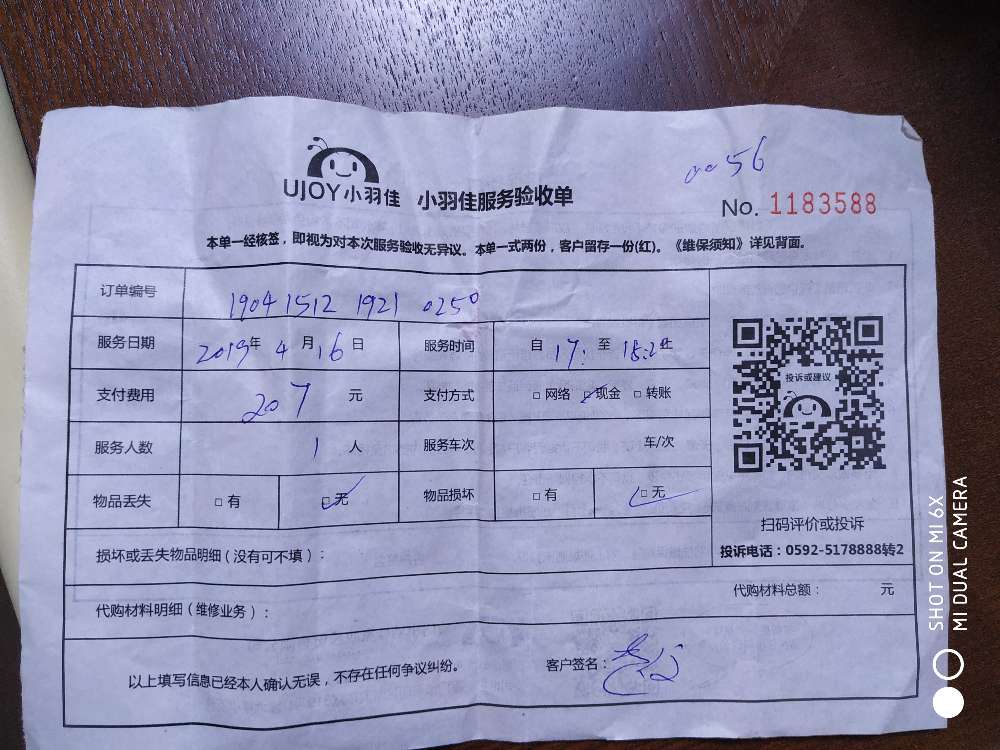 0056
UJOY小羽佳 小羽佳服务验收单
No. 1183588
本单一经核签，即视为对本次服务验收无异议。本单一式两份，客户留存一份(红)。《维保须知》详见背面。
订单编号 1904 1512 1921 0250
服务日期 2019年 4月16日 服务时间 自 17: 至 18:2 止
支付费用 207 元 支付方式 □网络 □现金 □转账
服务人数 1 人 服务车次 车/次
物品丢失 □有 □无 物品损坏 □有 □无
投诉或建议
扫码评价或投诉
投诉电话：0592-5178888转2
损坏或丢失物品明细（没有可不填）：
代购材料明细（维修业务）：
代购材料总额： 元
以上填写信息已经本人确认无误，不存在任何争议纠纷。
客户签名：
SHOT ON MI 6X
MI DUAL CAMERA